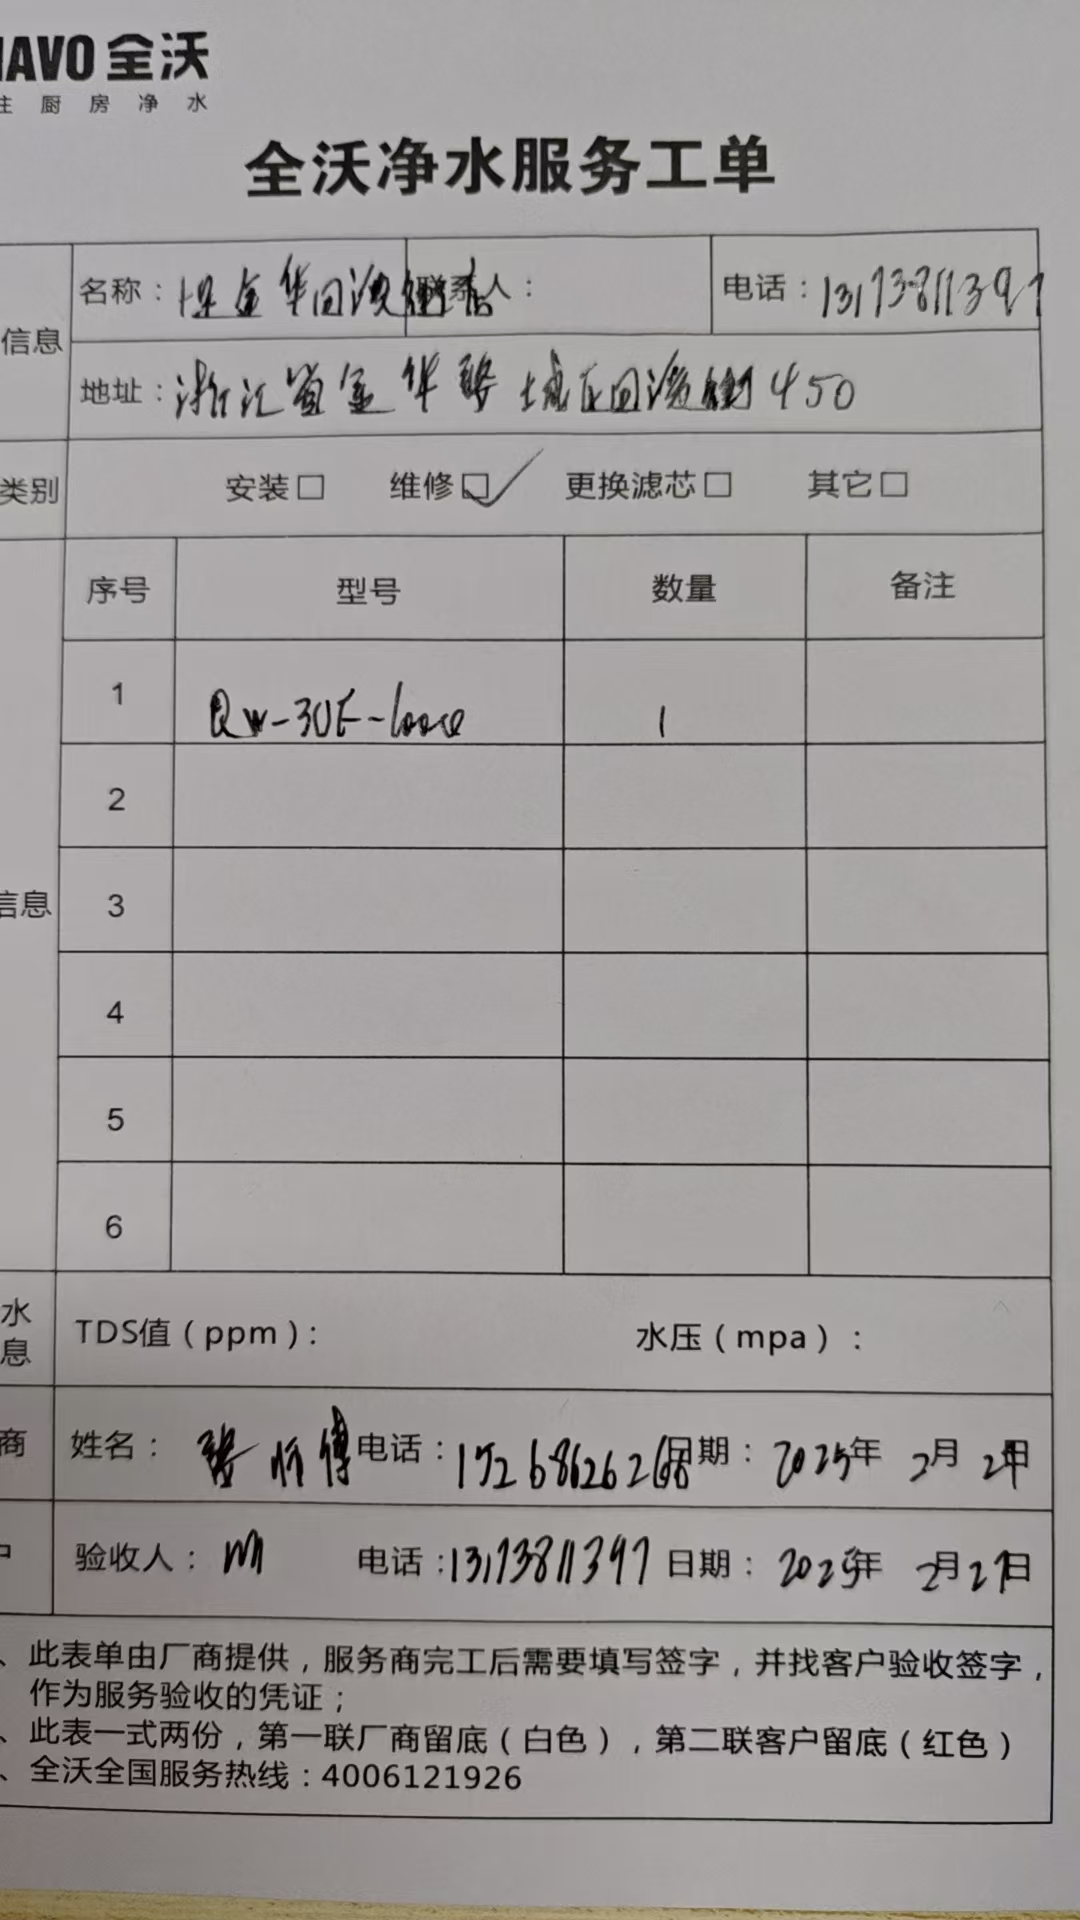 NAVO 全沃
住厨房净水
全沃净水服务工单
信息
名称： 金华回溪街店 联系人： 电话：13173811397
地址：浙江省金华婺城区回溪街450
类别 安装□ 维修□✓ 更换滤芯□ 其它□
序号 型号 数量 备注
1 QW-30E-1000 1
2
信息 3
4
5
6
水息 TDS值（ppm）： 水压（mpa）：
商 姓名： 师傅 电话：15268626268 日期：2025年 2月 27日
户 验收人： 电话：13173811397 日期：2025年 2月27日
、此表单由厂商提供，服务商完工后需要填写签字，并找客户验收签字，
作为服务验收的凭证；
、此表一式两份，第一联厂商留底（白色），第二联客户留底（红色）
、全沃全国服务热线：4006121926